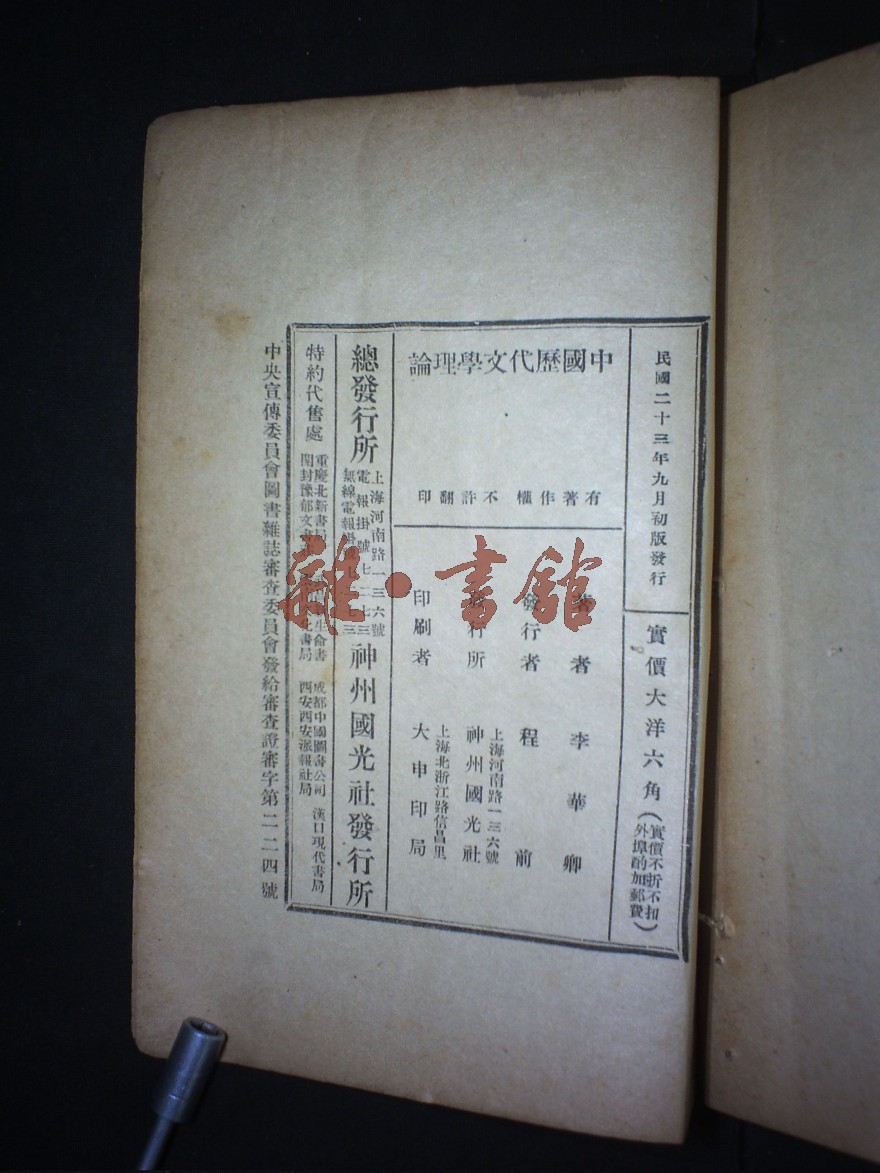 民國二十三年九月初版發行
實價大洋六角
(實價不折不扣
外埠酌加郵費)
中國歷代文學理論
有著作權 不許翻印
著者 李華卿
發行者 程前
發行所
上海河南路一三六號
神州國光社
印刷者
上海北浙江路信昌里
大申印局
總發行所
上海河南路一三六號
電報掛號七二七三
無線電報掛七二七三
神州國光社發行所
特約代售處
重慶北新書局
生命書
成都中國圖書公司
漢口現代書局
開封豫郁文書
化書局
西安西安派報社局
中央宣傳委員會圖書雜誌審查委員會發給審查證審字第二二四號
雜·書館